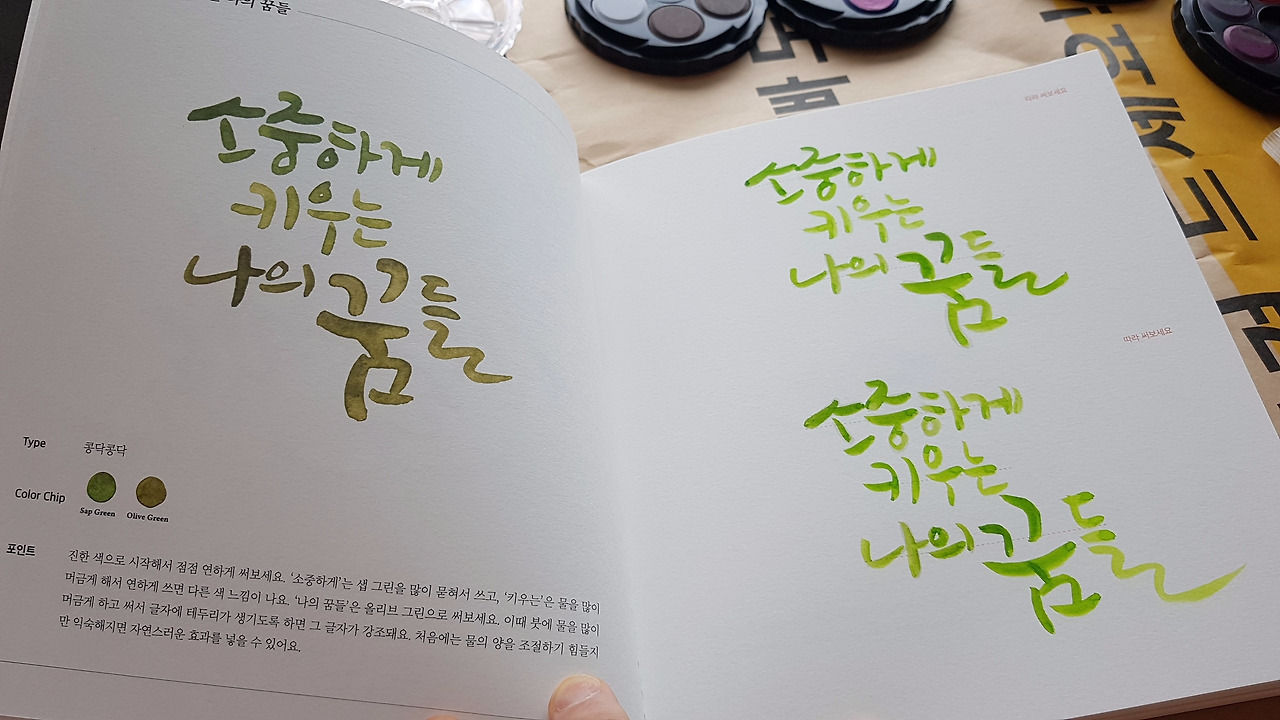 나의 꿈들
소중하게
키우는
나의 꿈들
Type 콩닥콩닥
Color Chip
Sap Green Olive Green
포인트 진한 색으로 시작해서 점점 연하게 써보세요. '소중하게'는 샙 그린을 많이 묻혀서 쓰고, '키우는'은 물을 많이
머금게 해서 연하게 쓰면 다른 색 느낌이 나요. '나의 꿈들'은 올리브 그린으로 써보세요. 이때 붓에 물을 많이
머금게 하고 써서 글자에 테두리가 생기도록 하면 그 글자가 강조돼요. 처음에는 물의 양을 조절하기 힘들지
만 익숙해지면 자연스러운 효과를 넣을 수 있어요.
따라 써보세요
소중하게
키우는
나의 꿈들
따라 써보세요
소중하게
키우는
나의 꿈들